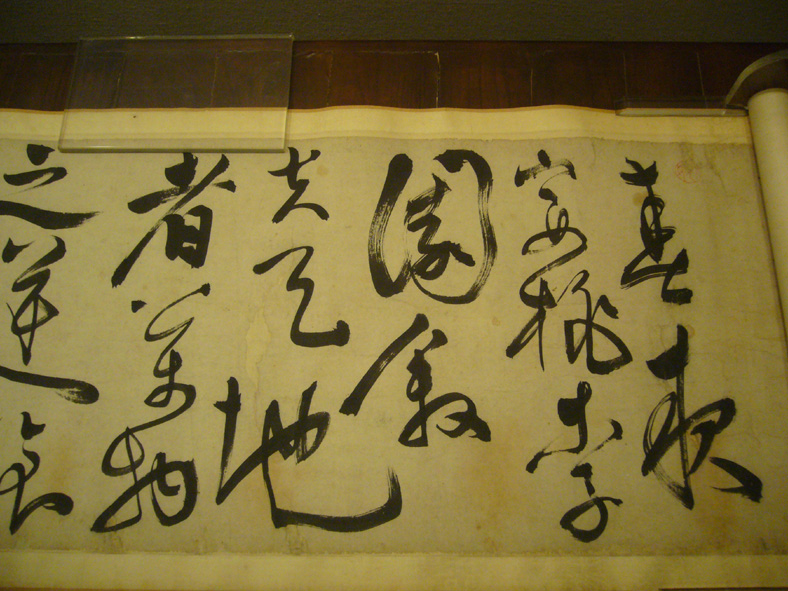 春夜
宴桃李
園敘
夫天地
者萬物
之逆旅